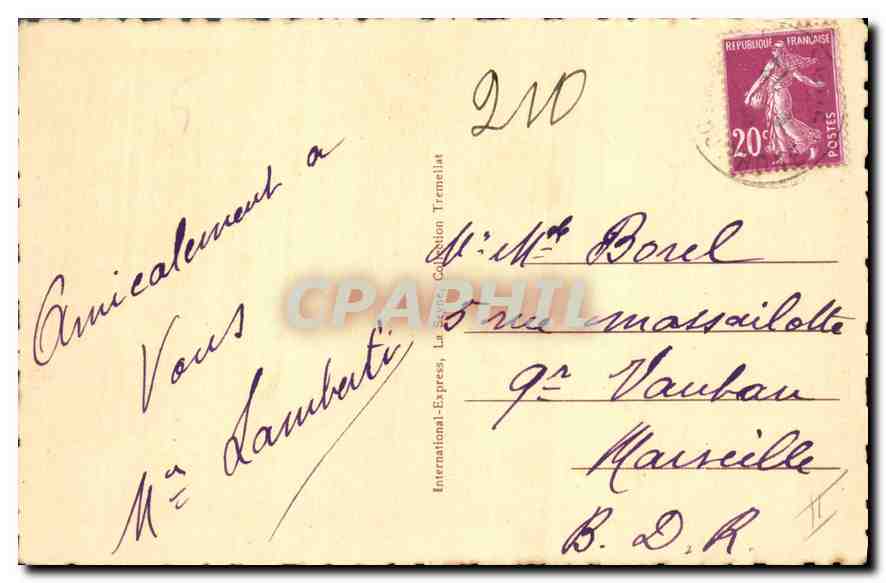 210
REPUBLIQUE FRANÇAISE
20c
POSTES
Amicalement a
Vous
Lamberti
International-Express, La Seyne, Collection Tremellat
CPAPHIL
Mr Mde Borel
5 rue massailotte
qr Vauban
Marseille
B. D. R.